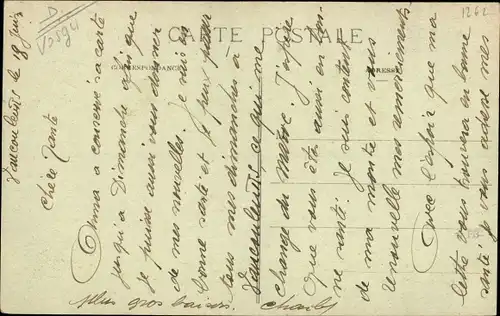 CARTE POSTALE
CORRESPONDANCE
ADRESSE
1262
Vaucouleurs le 18 juin
Chère Tante
Anna a conservé sa carte
jusqu'à Dimanche afin que
je puisse aussi vous donner
de mes nouvelles. Je suis en
bonne santé et je peux passer
tous mes dimanches à
Vaucouleurs ce qui me
change du métier. J'espère
que vous êtes aussi en bon-
ne santé. Je suis content
de ma montre et vous
renouvelle mes remerciements.
Avec l'espoir que ma
lettre vous trouvera en bonne
santé je vous adresse mes
plus gros baisers. Charles